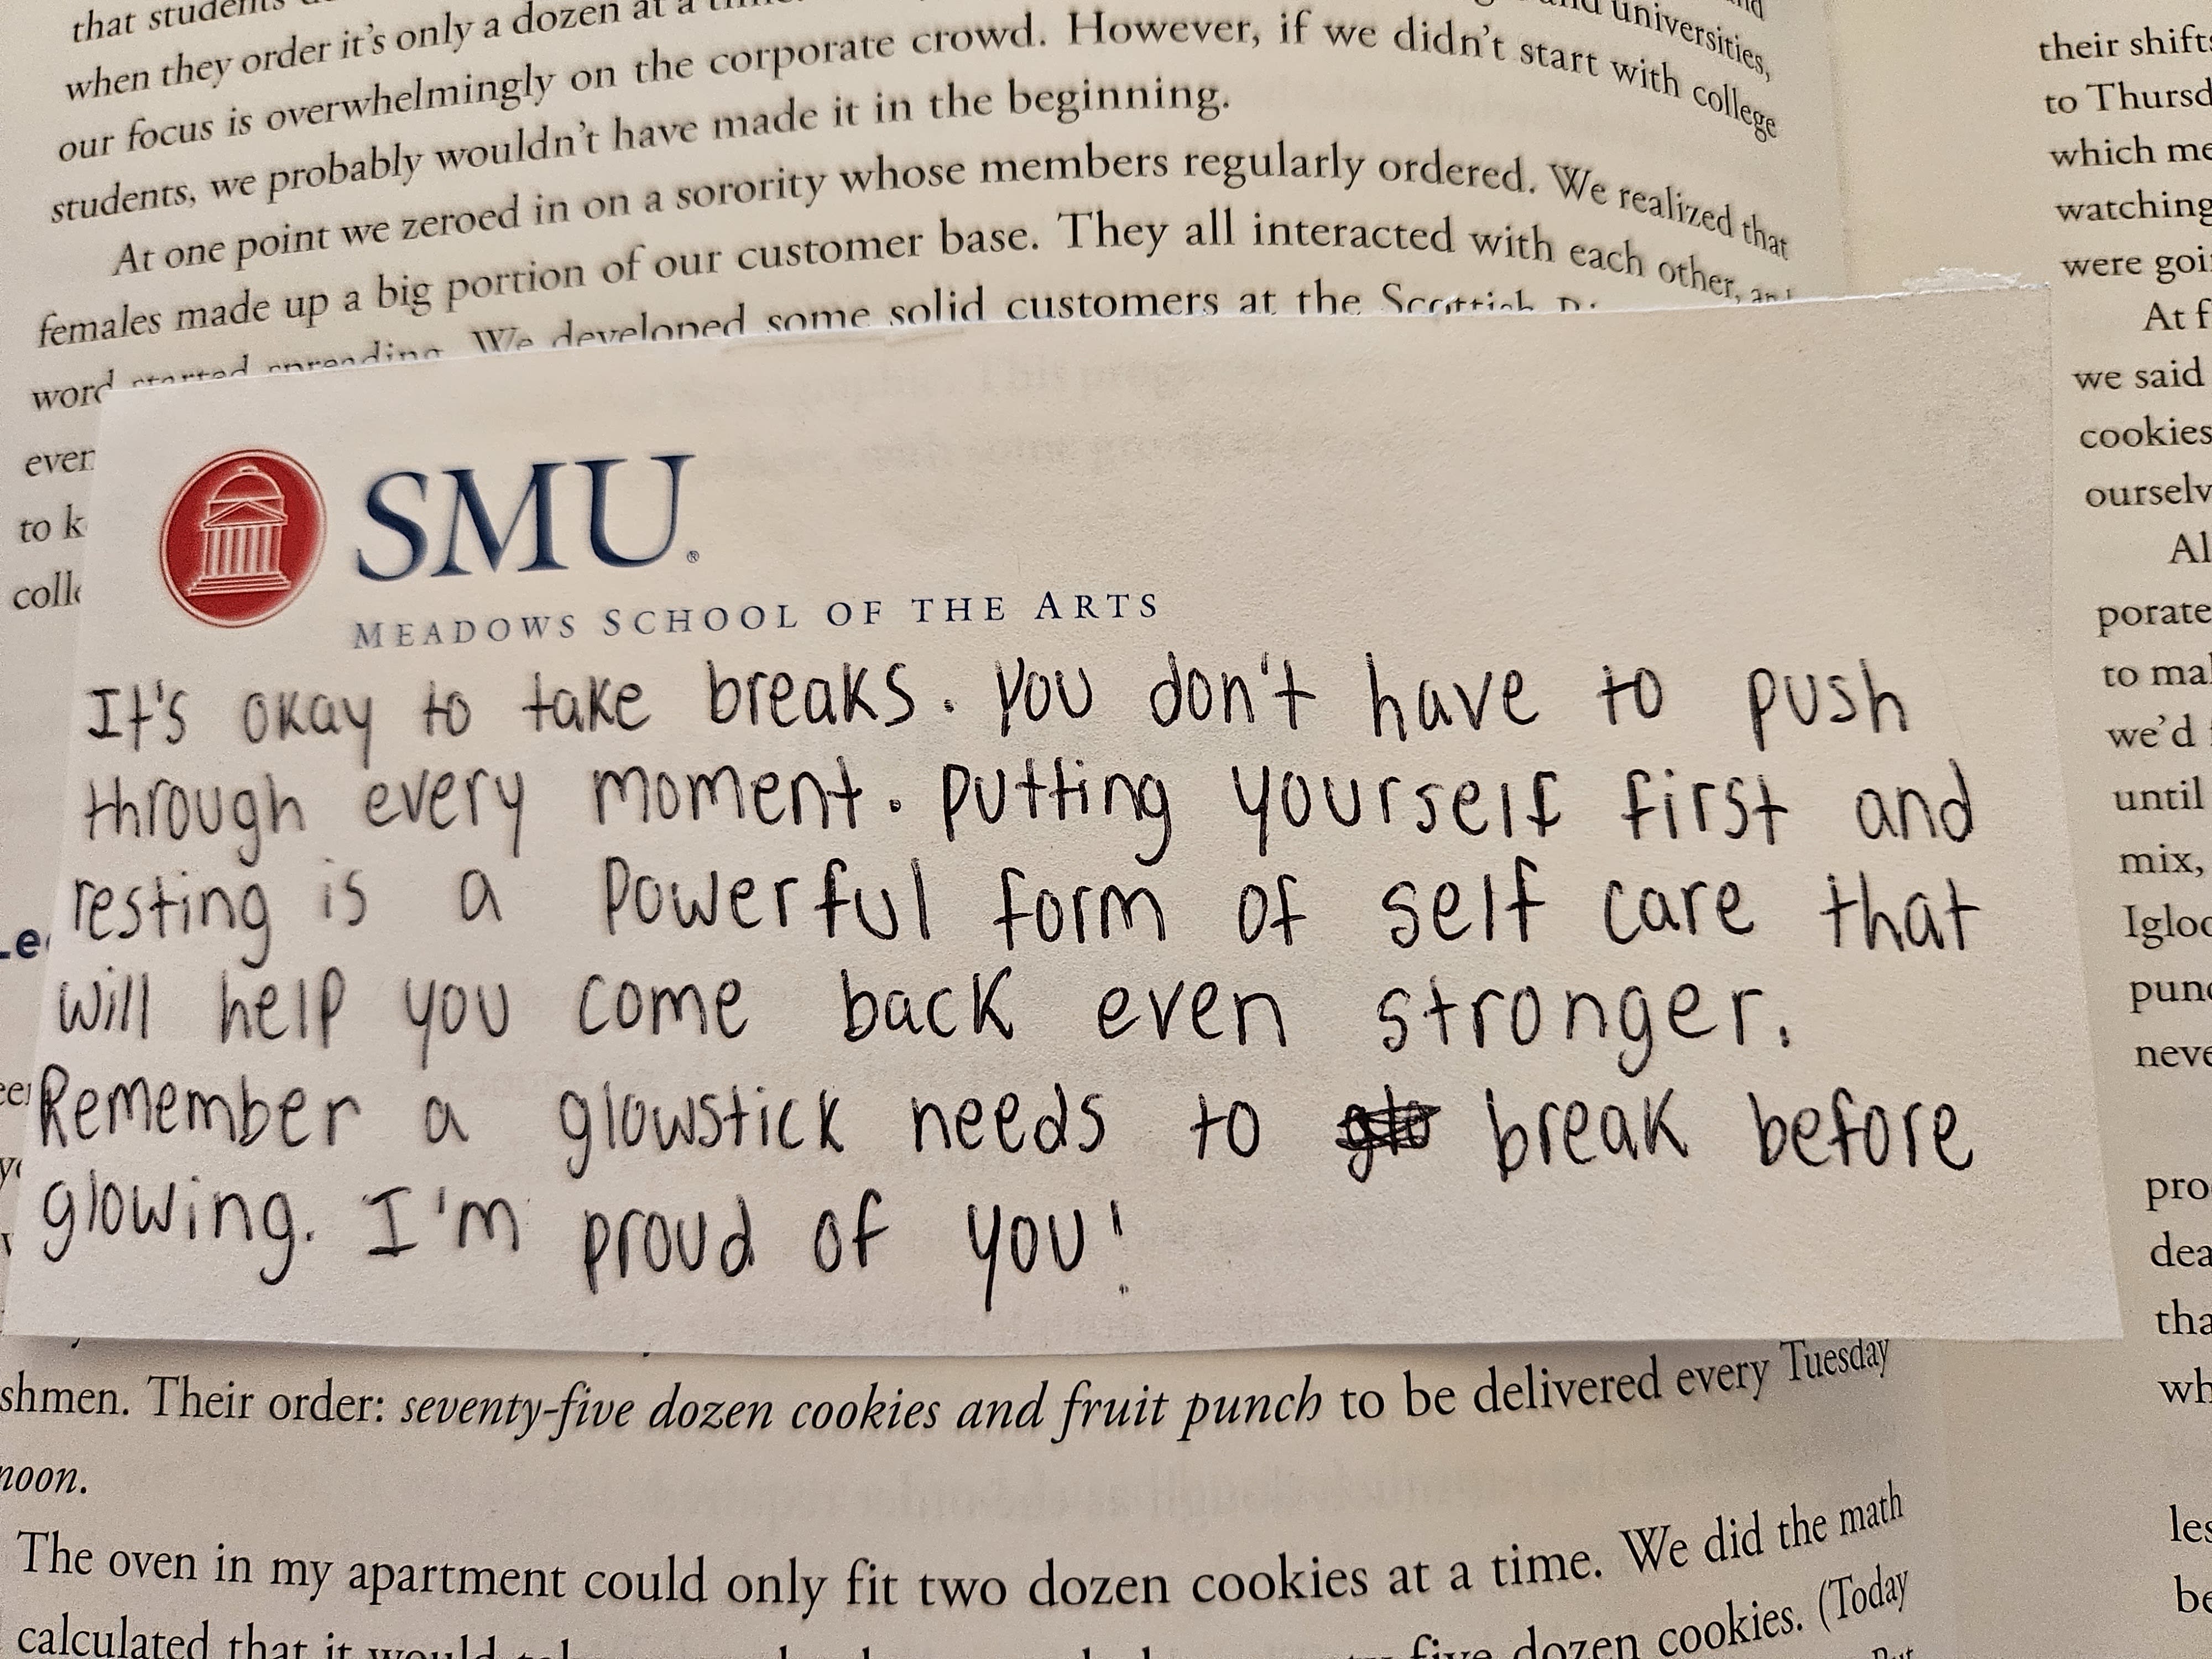 that students
when they order it's only a dozen at a time.
our focus is overwhelmingly on the corporate crowd. However, if we didn't start with college
students, we probably wouldn't have made it in the beginning.
At one point we zeroed in on a sorority whose members regularly ordered. We realized that
females made up a big portion of our customer base. They all interacted with each other, and
word started spreading. We developed some solid customers at the Scottish
even
to k
coll
SMU®
MEADOWS SCHOOL OF THE ARTS
It's okay to take breaks. You don't have to push
through every moment. Putting yourself first and
resting is a powerful form of self care that
will help you come back even stronger.
Remember a glowstick needs to glo break before
glowing. I'm proud of you!
shmen. Their order: seventy-five dozen cookies and fruit punch to be delivered every Tuesday
noon.
The oven in my apartment could only fit two dozen cookies at a time. We did the math
calculated that it would five dozen cookies. (Today
universities,
their shifts
to Thursd
which me
watching
were goi
At f
we said
cookies
ourselv
Al
porate
to mal
we'd
until
mix,
Igloo
punc
neve
pro
dea
tha
wh
les
be